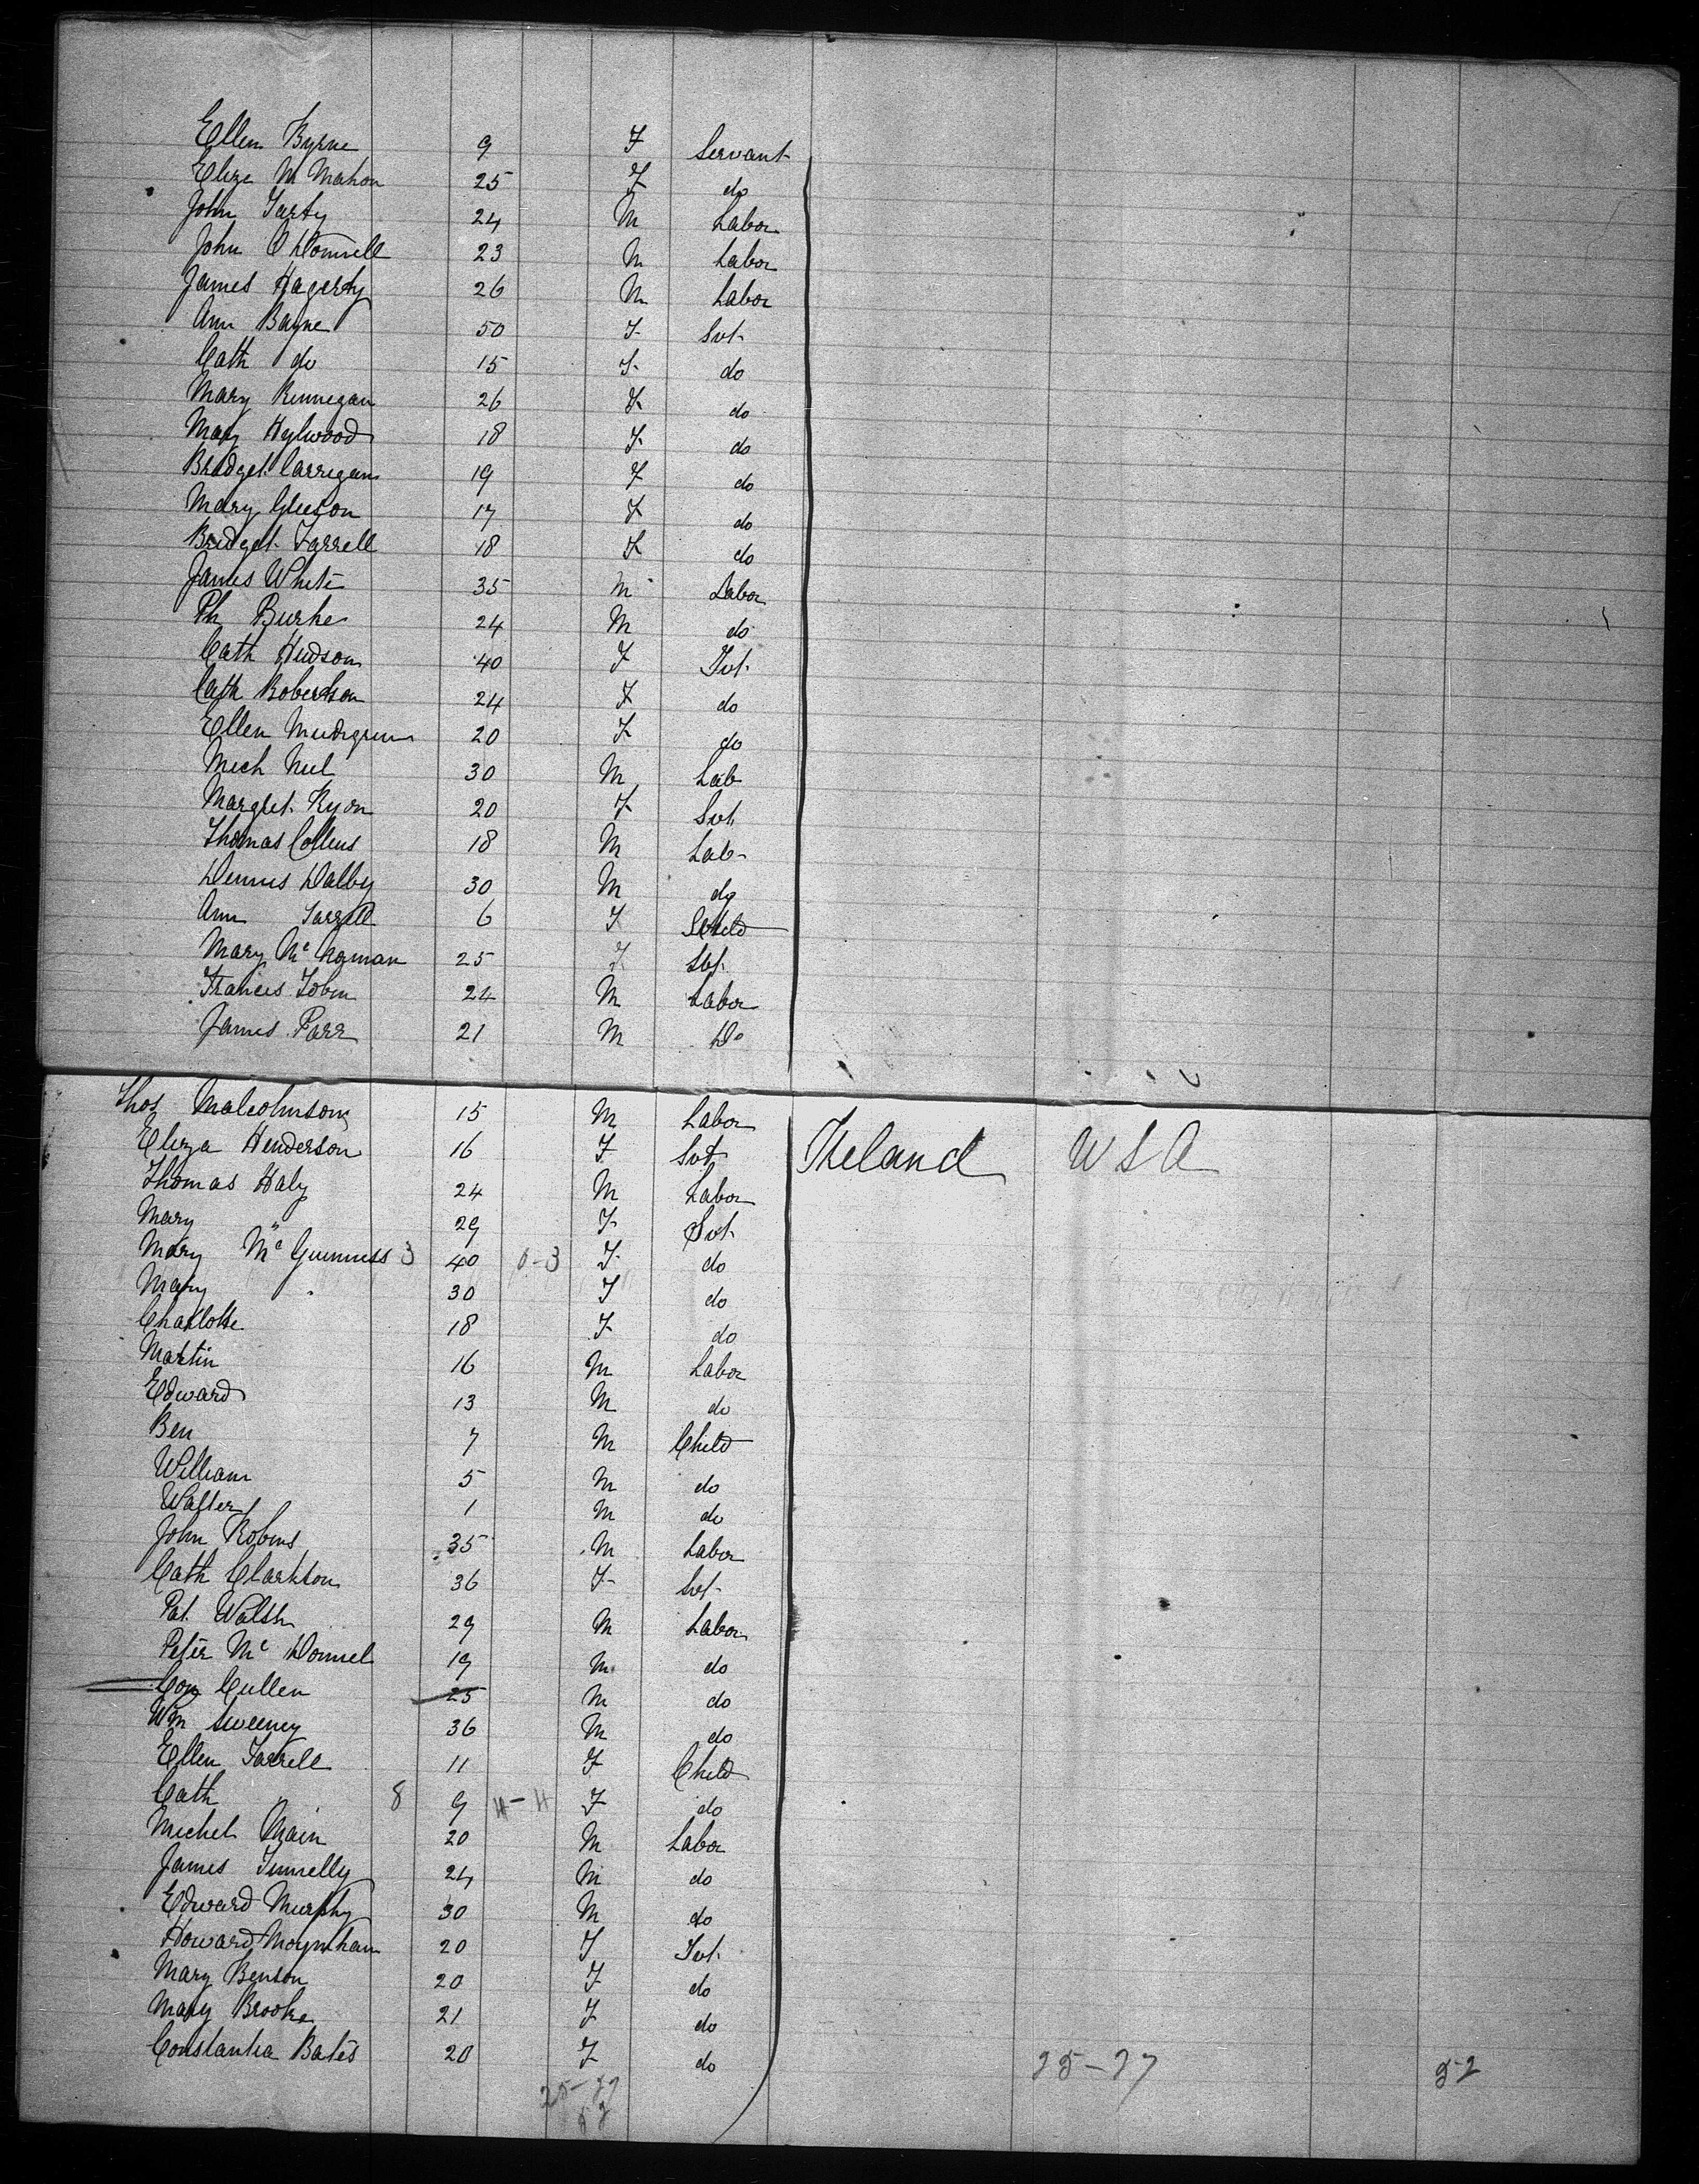 Ellen Byrne 9 F Servant
Eliza McMahon 25 F do
John Farty 24 M Labor
John O Donnell 23 M Labor
James Hagerty 26 M Labor
Ann Bayne 50 F Svt
Cath do 15 F do
Mary Kinnegan 26 F do
Mary Hylwood 18 F do
Bridget Carrigan 19 F do
Mary Gleeson 17 F do
Bridget Farrell 18 F do
James White 35 M Labor
Ph Burke 24 M do
Cath Hudson 40 F Svt
Cath Robertson 24 F do
Ellen 20 F do
Mich Neil 30 M Lab
Margret Ryon 20 F Svt
Thomas Collins 18 M Lab
Dennis Dalby 30 M do
Ann Farrell 6 F Child
Mary Mc Naman 25 F Svt
Francis Tobin 24 M Labor
James Parr 21 M Do
Thos Malcolmson 15 M Labor
Eliza Henderson 16 F Svt Ireland USA
Thomas Haly 24 M Labor
Mary " 29 F Svt
Mary Mc Guinness 3 40 0-3 F do
Mary 30 F do
Charlotte 18 F do
Martin 16 M Labor
Edward 13 M do
Ben 7 M Child
William 5 M do
Walter 1 M do
John Robins 35 M Labor
Cath Clarkson 36 F Svt
Pat Walsh 29 M Labor
Peter Mc Donnel 19 M do
Con Cullen 25 M do
Wm Sweeney 36 M do
Ellen Farrell 11 F Child
Cath 8 9 F do
Michel Main 20 M Labor
James Funnelly 24 M do
Edward Murphy 30 M do
Howard Moynihan 20 F Svt
Mary Benson 20 F do
Mary Brooke 21 F do
Constantia Bates 20 F do
25-27 25-27 52
52